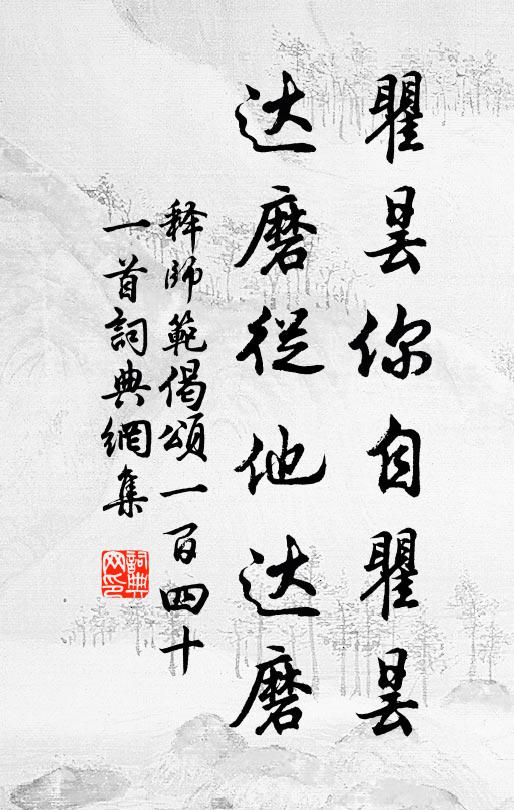 瞿昙你自瞿昙
达磨從他达磨
释師範偈頌一百四十
一首詞典網集
詞典网印